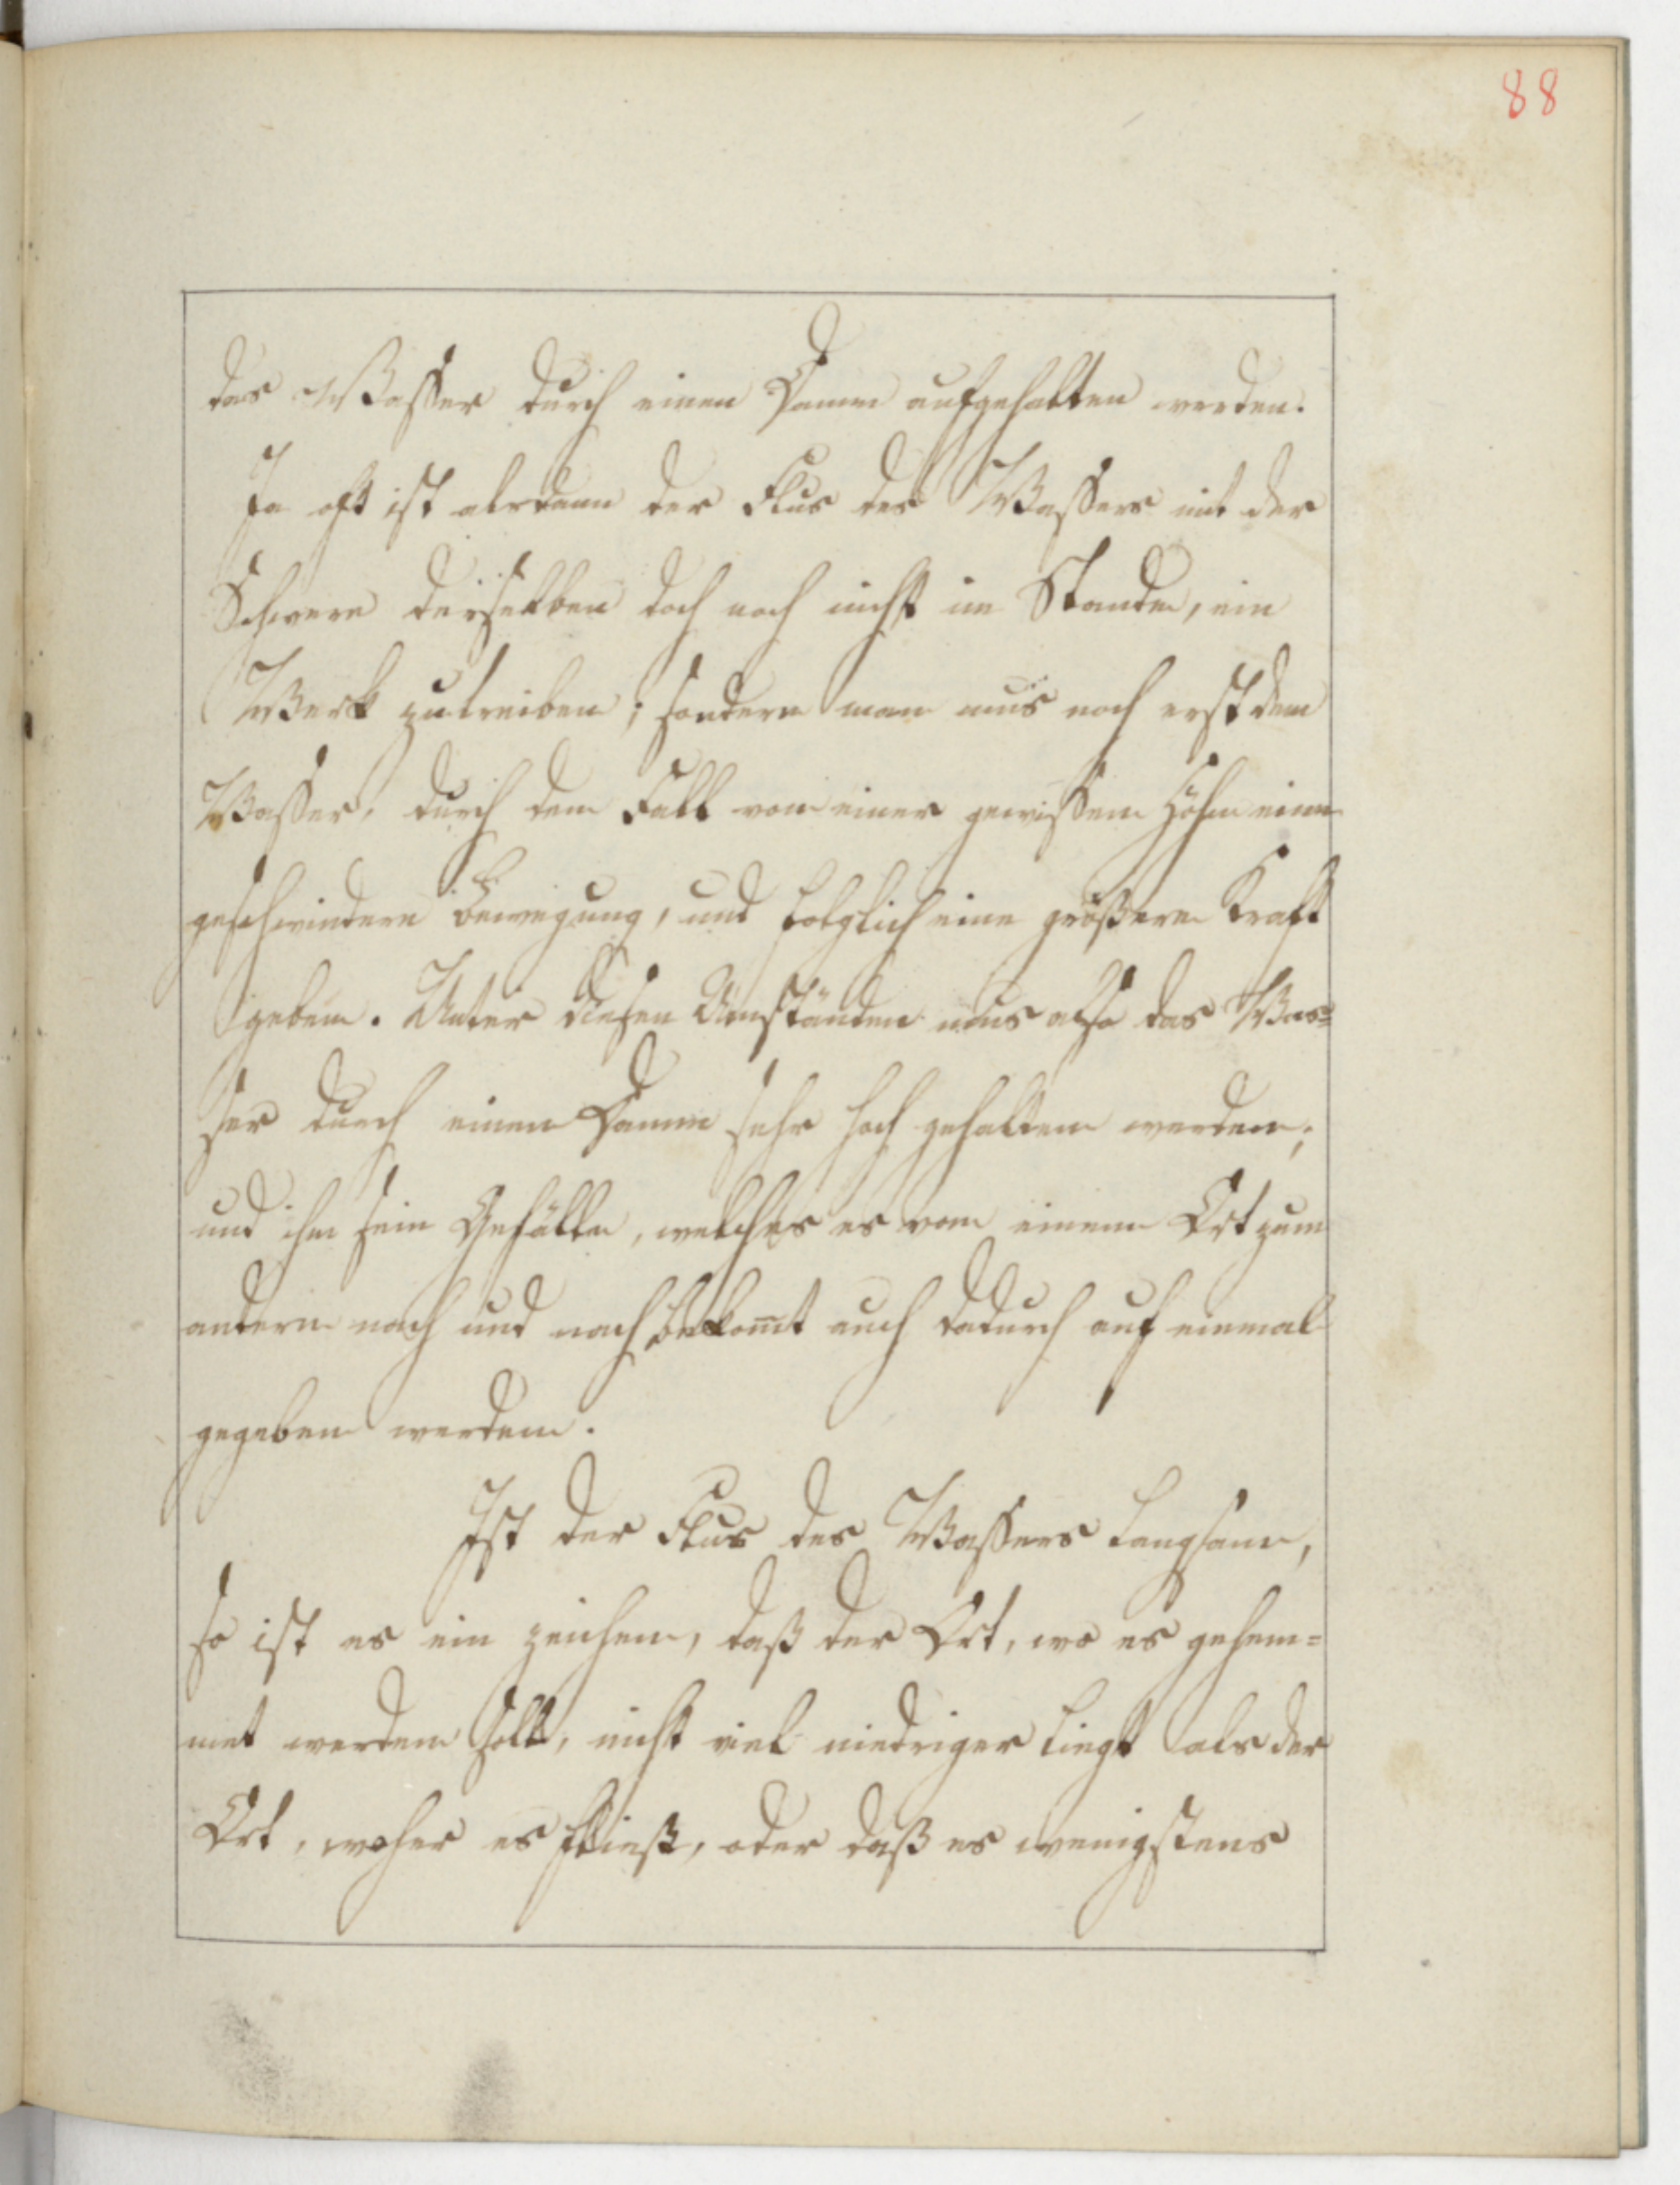 88
das Wasser durch einen Damm aufgehalten werden.
Ja oft ist alsdann der Flus des Wassers mit der
Schwere desselben doch noch nicht im Stande, ein
Werk zutreiben; sondern man mus noch erst dem
Wasser, durch dem Fall von einer gewissen Höhe eine
geschwindere Bewegung, und folglich eine größere Kraft
geben. Unter diesen Umständen mus also das Was=
ser durch einen Damm sehr hoch gehalten werden;
und ihm sein Gefälle, welches es von einem Ort zum
andern nach und nach bekom̅t auch dadurch auf einmal
gegeben werden.
Ist der Flus des Wassers langsam,
so ist es ein zeichen, daß der Ort, wo es gehem=
met werden soll, nicht viel niedriger liegt als der
Ort, woher es fliest, oder daß es wenigstens